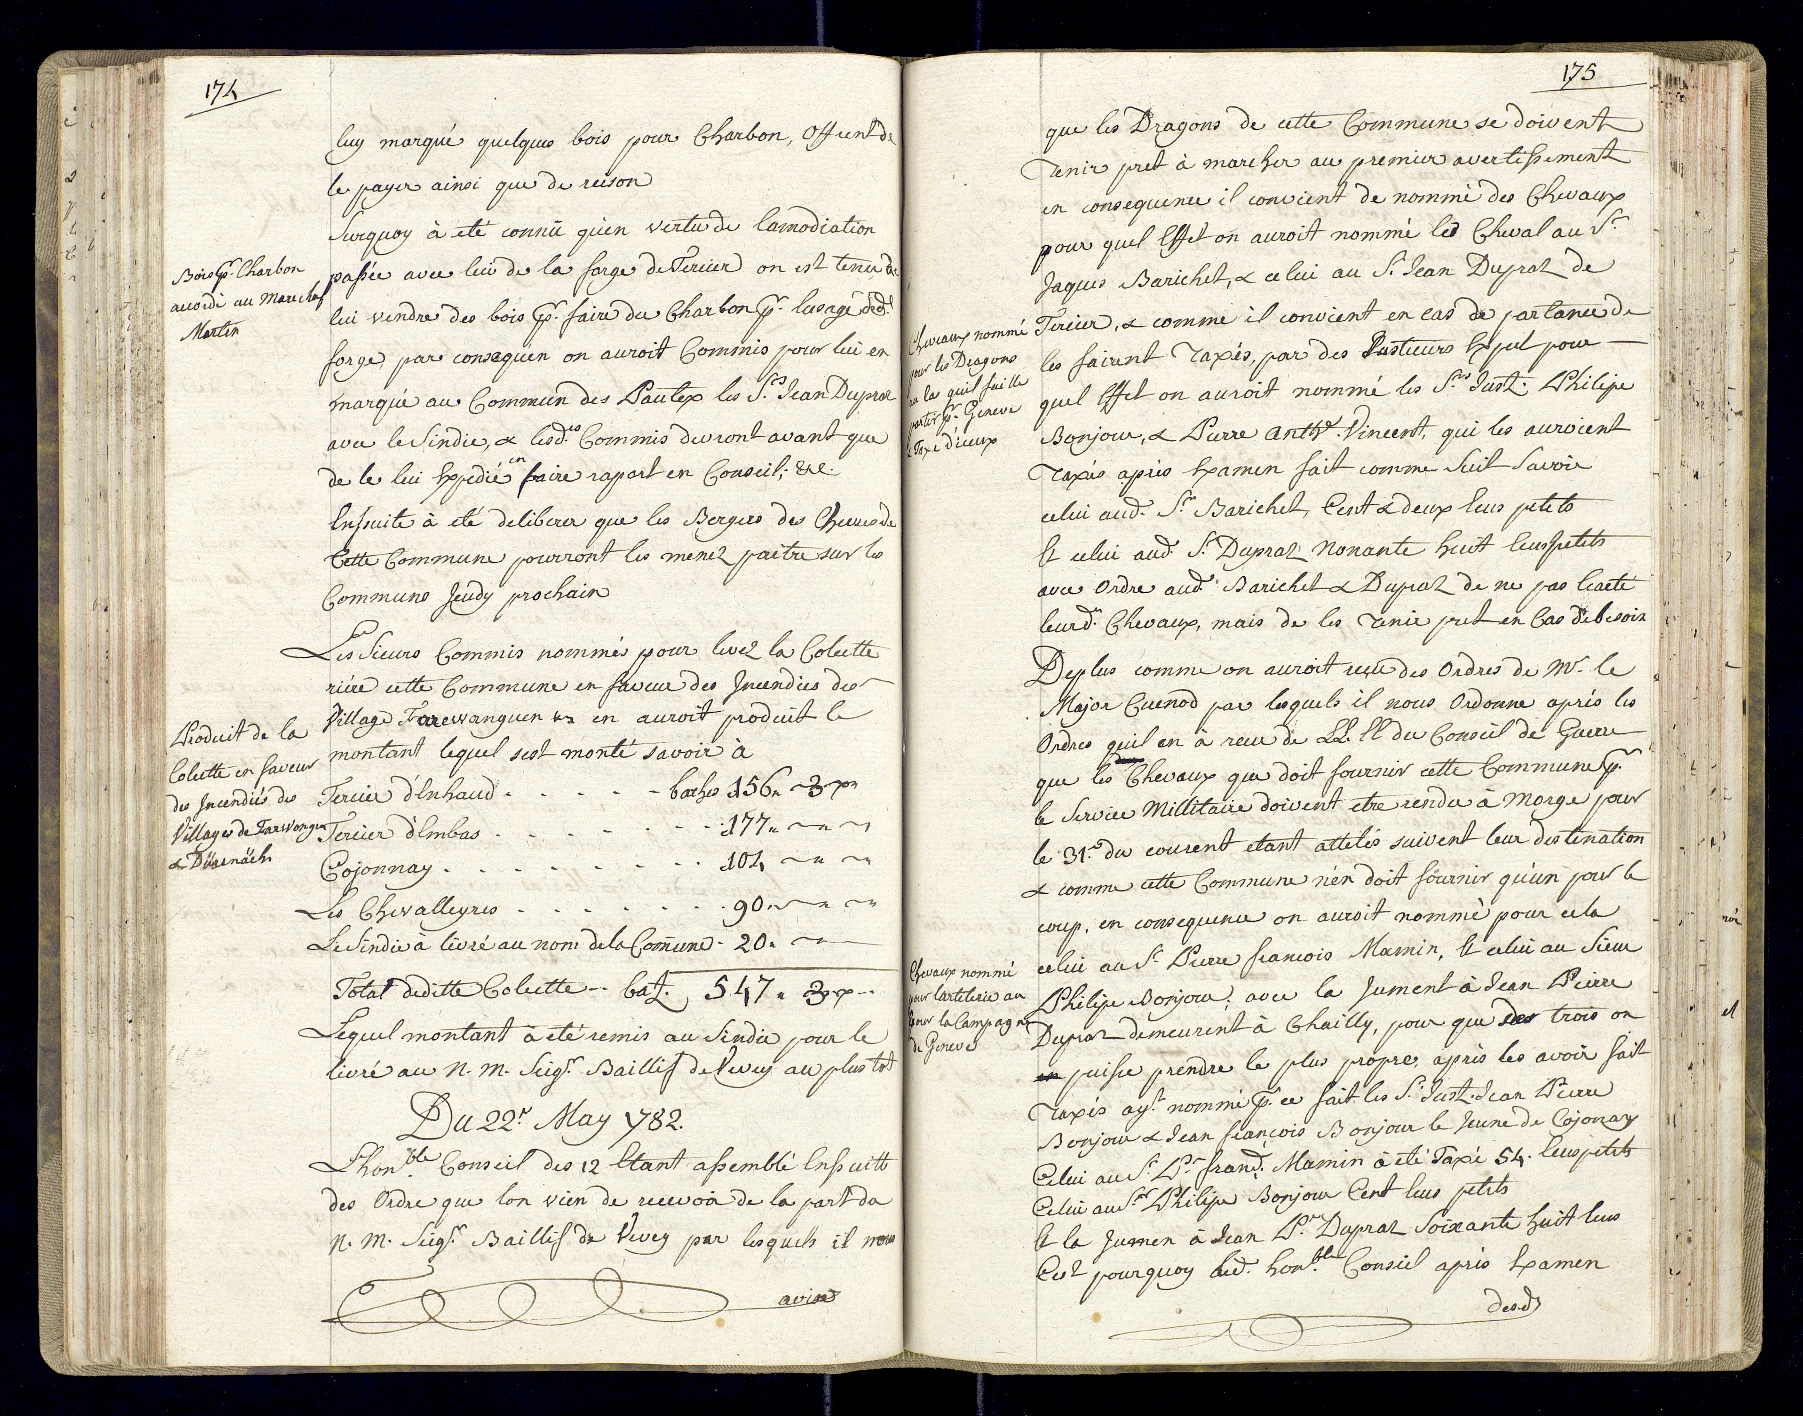 174
luy marqué quelques bois pour Charbon, offrent de
le payer ainsi que de reison
Surquoy à eté connû qu'en vertu de lamodiation
Bois pr. Charbon
accordé au Marechal
Martin
passée avec lui de la forge de Tercier on est tenu de
lui vendre des bois pr. faire du Charbon pr. lusage dud.
forge, par consequen on auroit Commis pour lui en
marqué au Commun des Pautex les Srs. Jean Dupraz
avec le Sindic, & lesd.es Commis devront avant que
de le lui Expedié en faire raport en Conseil, &c.
Ensuite à eté deliberer que les Bergers des Chevres de
Cette Commune pourront les menez paitre sur les
Communs Jeudy prochain
Les Sieurs Commis nommés pour levez la Colecte
riére cette Commune en faveur des Incendiés des
Produit de la
Colecte en faveur
des Incendiés des
Villages de Farwangen
& Dürrnäch
Village Farewanguen &a en auroit produit le
montant lequel s'est monté savoir à
Tercier d'Enhaud . . . . . - baches 156 " - 3 xr
Tercier d'Embas . . . . . . . 177 " - " -
Cojonnay . . . . . . . . 104 - " -
Les Chevalleyres . . . . . . . 90 " - " -
Le Sindic à livré au nom de la Comune - 20 " -
Total deditte Colecte - - batz. 547 " 3 xr -
Lequel montant à eté remis au Sindic pour le
livré au N. M. Seigr. Baillif de Vevey au plus tot
Du 22e. May 1782.
L'honble Conseil des 12 Etant assemblé Ensuitte
des Ordre que lon vien de recevoir de la part du
N. M. Seigr. Baillif de Vevey par lesquels il nous
avise
175
que les Dragons de cette Commune se doivent
Tenir pret à marcher au premier avertissement
en consequence il convient de nommé des Chevaux
pour quel Effet on auroit nommé led Cheval au Sr.
Jaques Barichet, & celui au Sr. Jean Dupraz de
Chevaux nommé
pour les Dragons
en cas quil faille
partir pr. Geneve
& Taxe d'ieux
Tercier, & comme il convient en cas de partance de
les fairent Taxés, par des Pasteurs Expert pour
quel Effet on auroit nommé les Srs. Just. Philipe
Bonjour, & Pierre Anthe. Vincent, qui les auroient
Taxés après Examen fait comme Suit Savoir
celui aud. Sr. Barichet, Cent & deux Ecus petits
Et celui aud Sr. Dupraz Nonante huit Ecus petits
avec Ordre aud. Barichet & Dupraz de ne pas Ecarté
leurd. Chevaux, mais de les Tenir pret en Cas de besoin
Deplus comme on auroit reçu des Ordres de Mr. le
Major Cuenod par lesquels il nous Ordonne après les
Ordres quil en à recu de LL. EE du Conseil de Guerre
que les deux Chevaux que doit fournir cette Commune pr.
le Service Millitaire doivent etre rendu à Morge pour
le 31e. du courent etant attelés suivent leur destination
& comme cette Commune n'en doit fournir qu'un pour le
coup, en consequence on auroit nommé pour cela
Chevaux nommé
pour lartelerie au
pour la Campagne
de Geneve
celui au Sr. Pierre francois Mamin, Et celui au Sieur
Philipe Bonjour, avec la Jument à Jean Pierre
Dupraz demeurent à Chailly, pour que des trois on
puisse prendre le plus propre, après les avoir fait
Taxés ayt. nommé pr. ce fait les Sr. Just. Jean Pierre
Bonjour & Jean francois Bonjour le Jeune de Cojonay
Celui au Sr. Pre. franç. Mamin à eté Taxé 54. Ecus petits
Celui au Sr. Philipe Bonjour Cent Ecus petits
Et la Jumen à Jean Pre. Dupraz Soixante huit Ecus
C'est pourquoy led. honble Conseil après Examen
desd